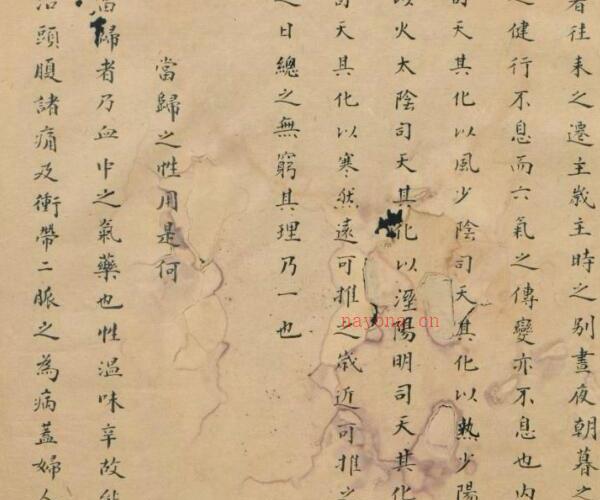 看往来之遷主歲主時之别晝夜朝暮之
之健行不息而六氣之傳變亦不息也内
司天其化以風少陰司天其化以熱少陽
以火太陰司天其化以溼陽明司天其化
司天其化以寒然遠可推之歲近可推之
之日總之無窮其理乃一也
當歸之性用是何
當歸者乃血中之氣藥也性温味辛故能
治頭腹諸痛及衝帶二脈之為病蓋婦人
nayona.cn